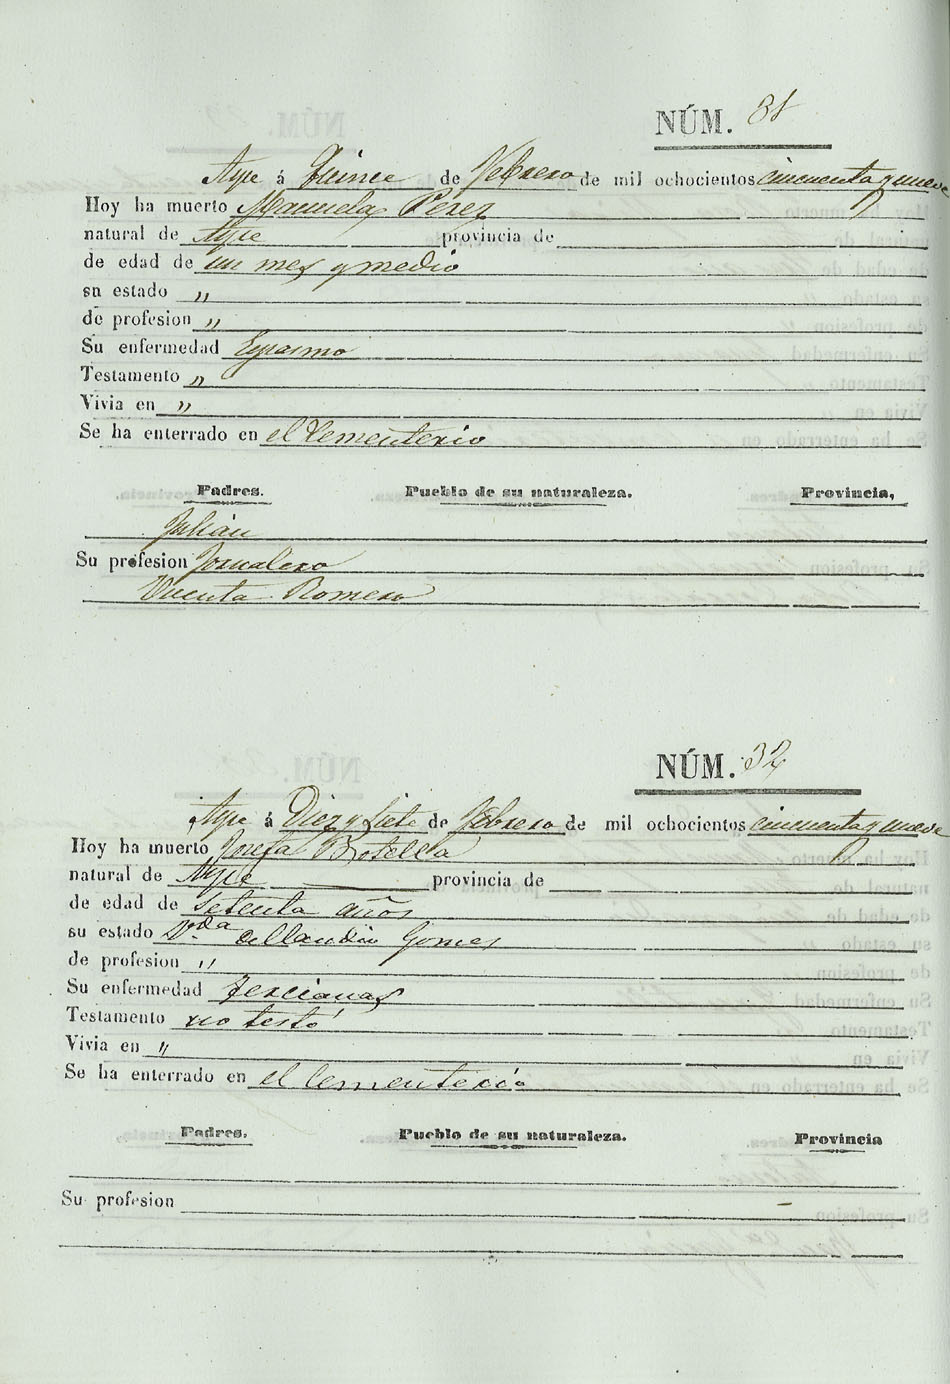 NÚM. 31
Aspe á Quince de Febrero de mil ochocientos cincuenta y nueve
Hoy ha muerto Manuela Pérez
natural de Aspe provincia de
de edad de un mes y medio
sn estado "
de profesion "
Su enfermedad Espasmo
Testamento "
Vivia en "
Se ha enterrado en el Cementerio
Padres. Pueblo de su naturaleza. Provincia,
Julián
Su profesion Jornalero
Vicenta Romero
NÚM. 32
Aspe á Diez y Siete de Febrero de mil ochocientos cincuenta y nueve
Hoy ha muerto Josefa Botella
natural de Aspe provincia de
de edad de Setenta años
su estado Vda. de Gomes
de profesion "
Su enfermedad Tercianas
Testamento no testó
Vivia en "
Se ha enterrado en el Cementerio
Padres. Pueblo de su naturaleza. Provincia
Su profesion